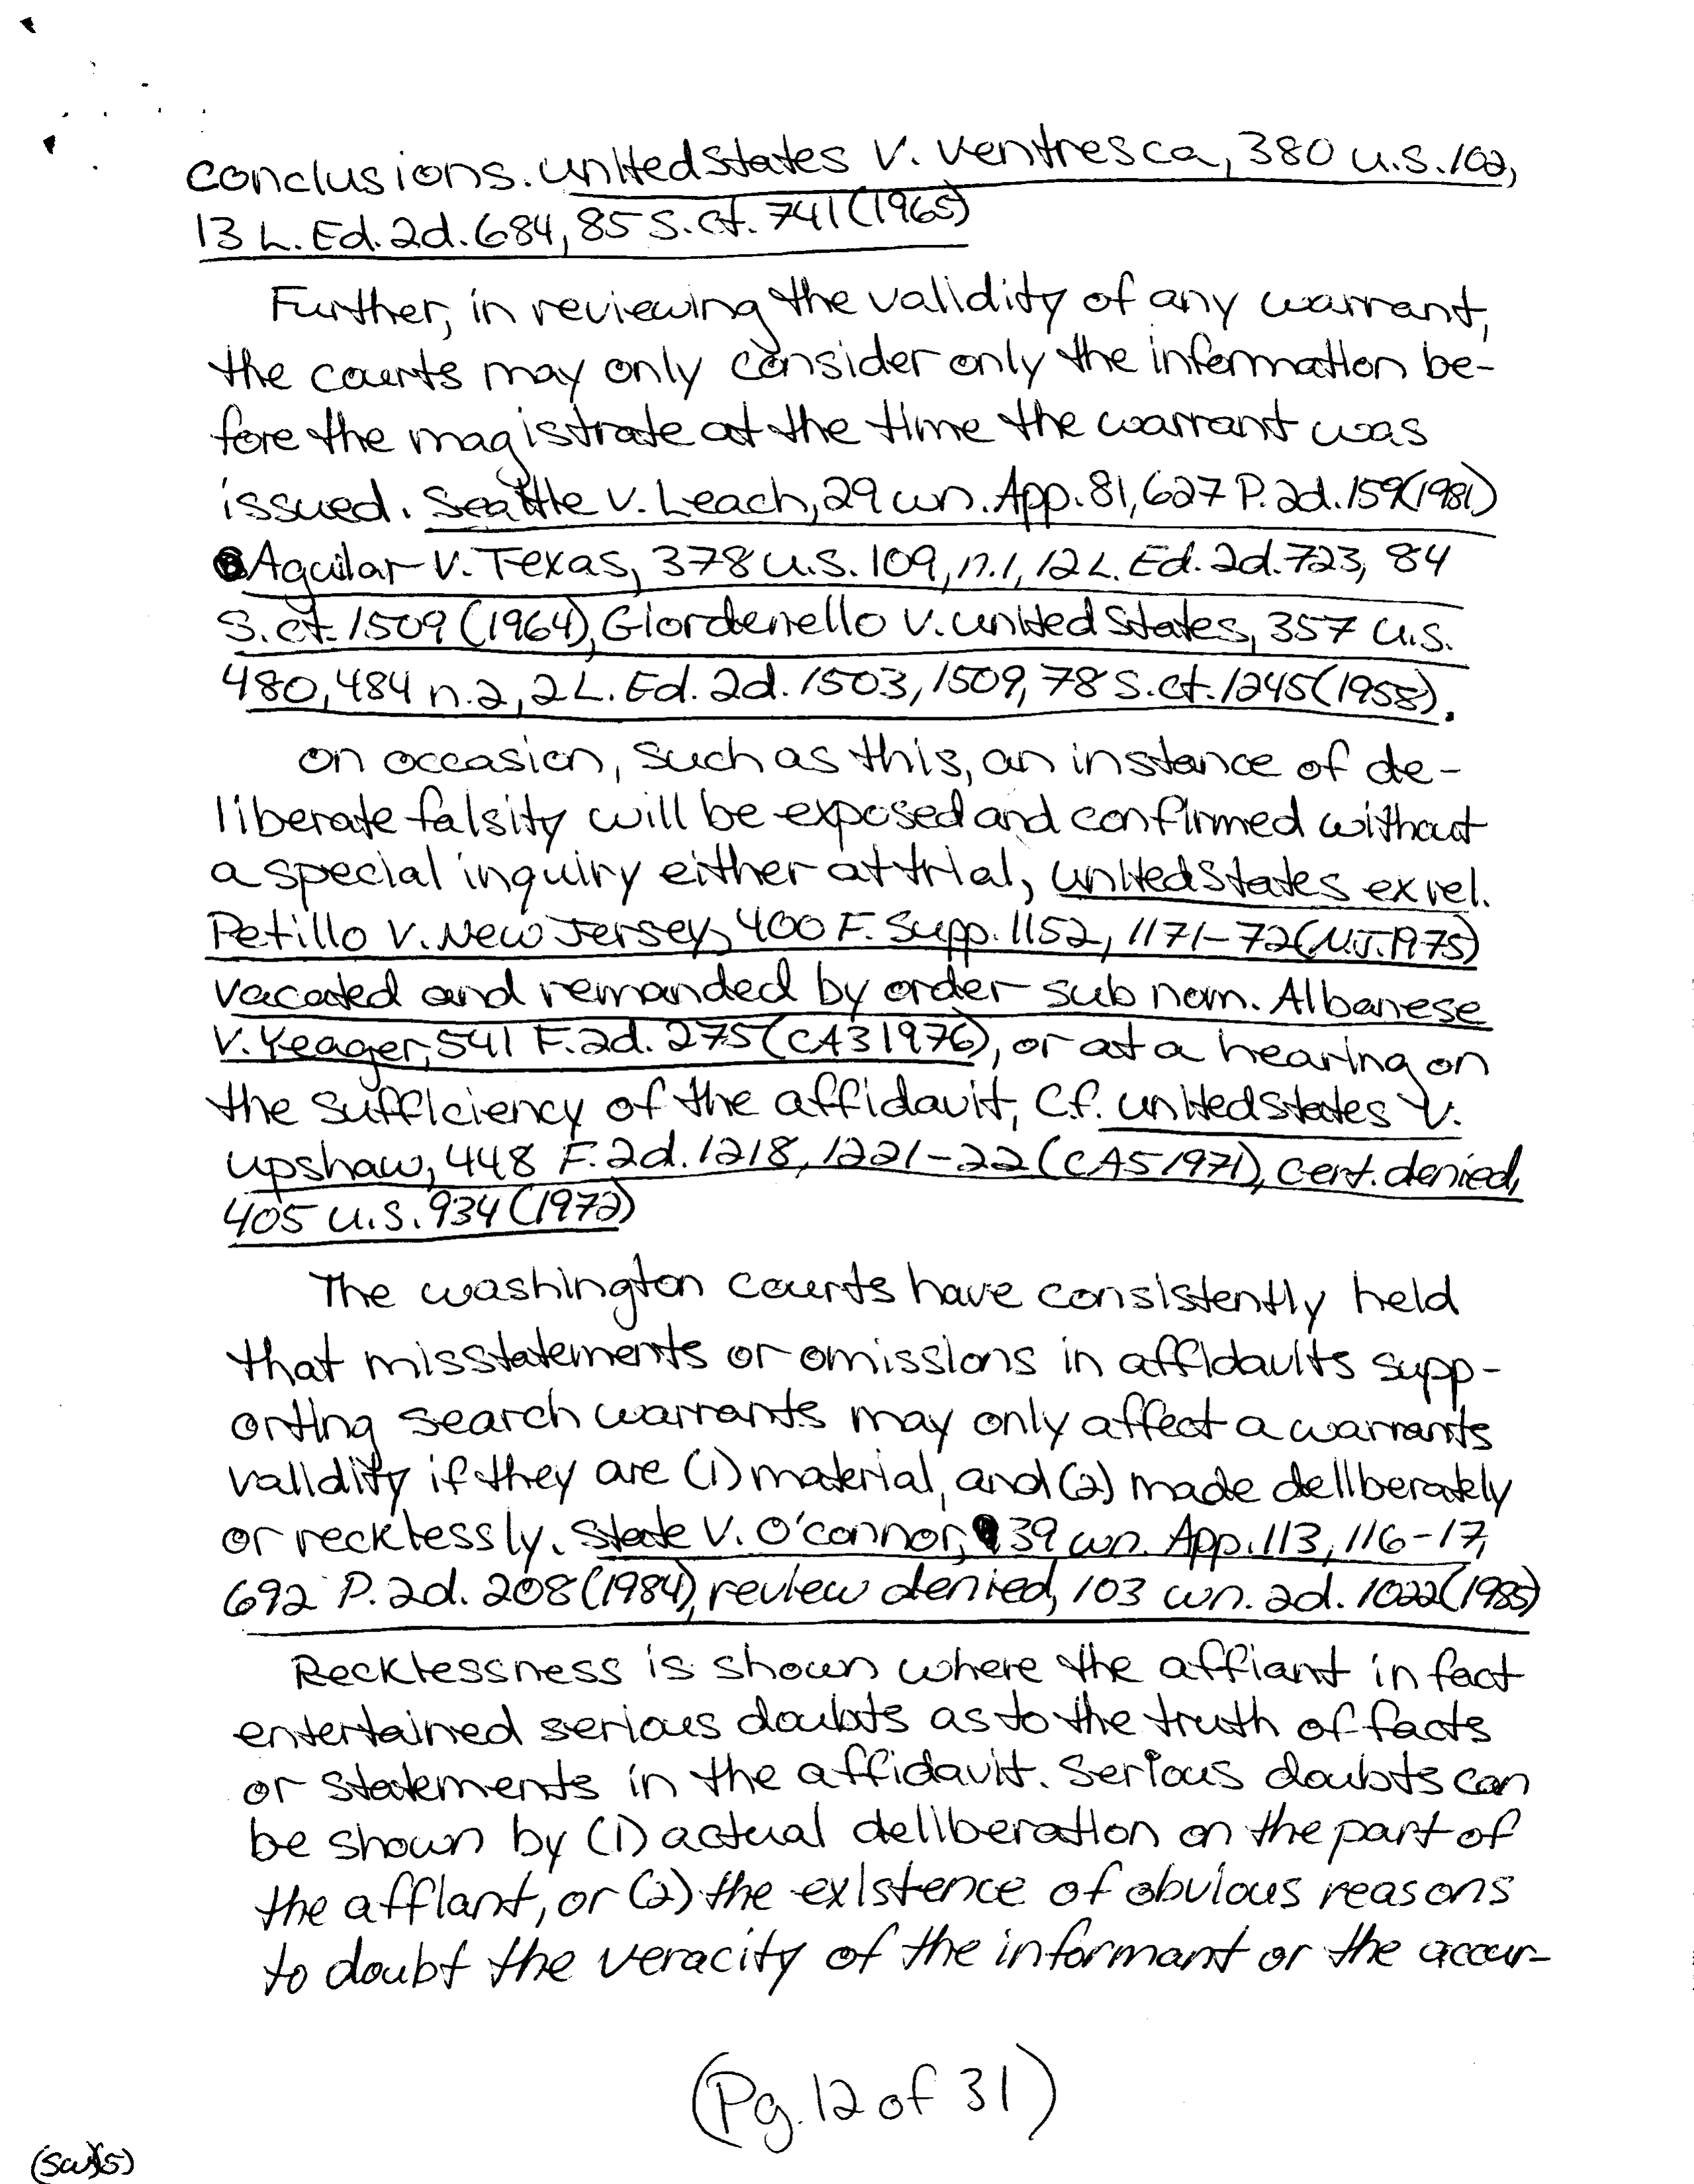 conclusions. United States v. Ventresca, 380 U.S. 102,
13 L. Ed. 2d. 684, 85 S. ct. 741 (1965)
Further, in reviewing the validity of any warrant,
the courts may only consider only the information be-
fore the magistrate at the time the warrant was
issued. Seattle v. Leach, 29 wn. App. 81, 627 P. 2d. 159 (1981)
Aguilar v. Texas, 378 U.S. 109, n.1, 12 L. Ed. 2d. 723, 84
S. ct. 1509 (1964), Giordenello v. United States, 357 U.S.
480, 484 n.2, 2 L. Ed. 2d. 1503, 1509, 78 S. ct. 1245 (1958).
on occasion, such as this, an instance of de-
liberate falsity will be exposed and confirmed without
a special inquiry either at trial, United States ex rel.
Petillo v. New Jersey, 400 F. Supp. 1152, 1171-72 (N.J. 1975)
vacated and remanded by order sub nom. Albanese
v. Yeager, 541 F. 2d. 275 (CA3 1976), or at a hearing on
the sufficiency of the affidavit, C.f. United States v.
Upshaw, 448 F. 2d. 1218, 1221-22 (CA5 1971), cert. denied,
405 U.S. 934 (1972)
The Washington courts have consistently held
that misstatements or omissions in affidavits supp-
orting search warrants may only affect a warrants
validity if they are (1) material, and (2) made deliberately
or recklessly. State v. O'connor, 39 wn. App. 113, 116-17,
692 P. 2d. 208 (1984), review denied, 103 wn. 2d. 1022 (1985)
Recklessness is shown where the affiant in fact
entertained serious doubts as to the truth of facts
or statements in the affidavit. Serious doubts can
be shown by (1) actual deliberation on the part of
the affiant, or (2) the existence of obvious reasons
to doubt the veracity of the informant or the accur-
(Pg. 12 of 31)